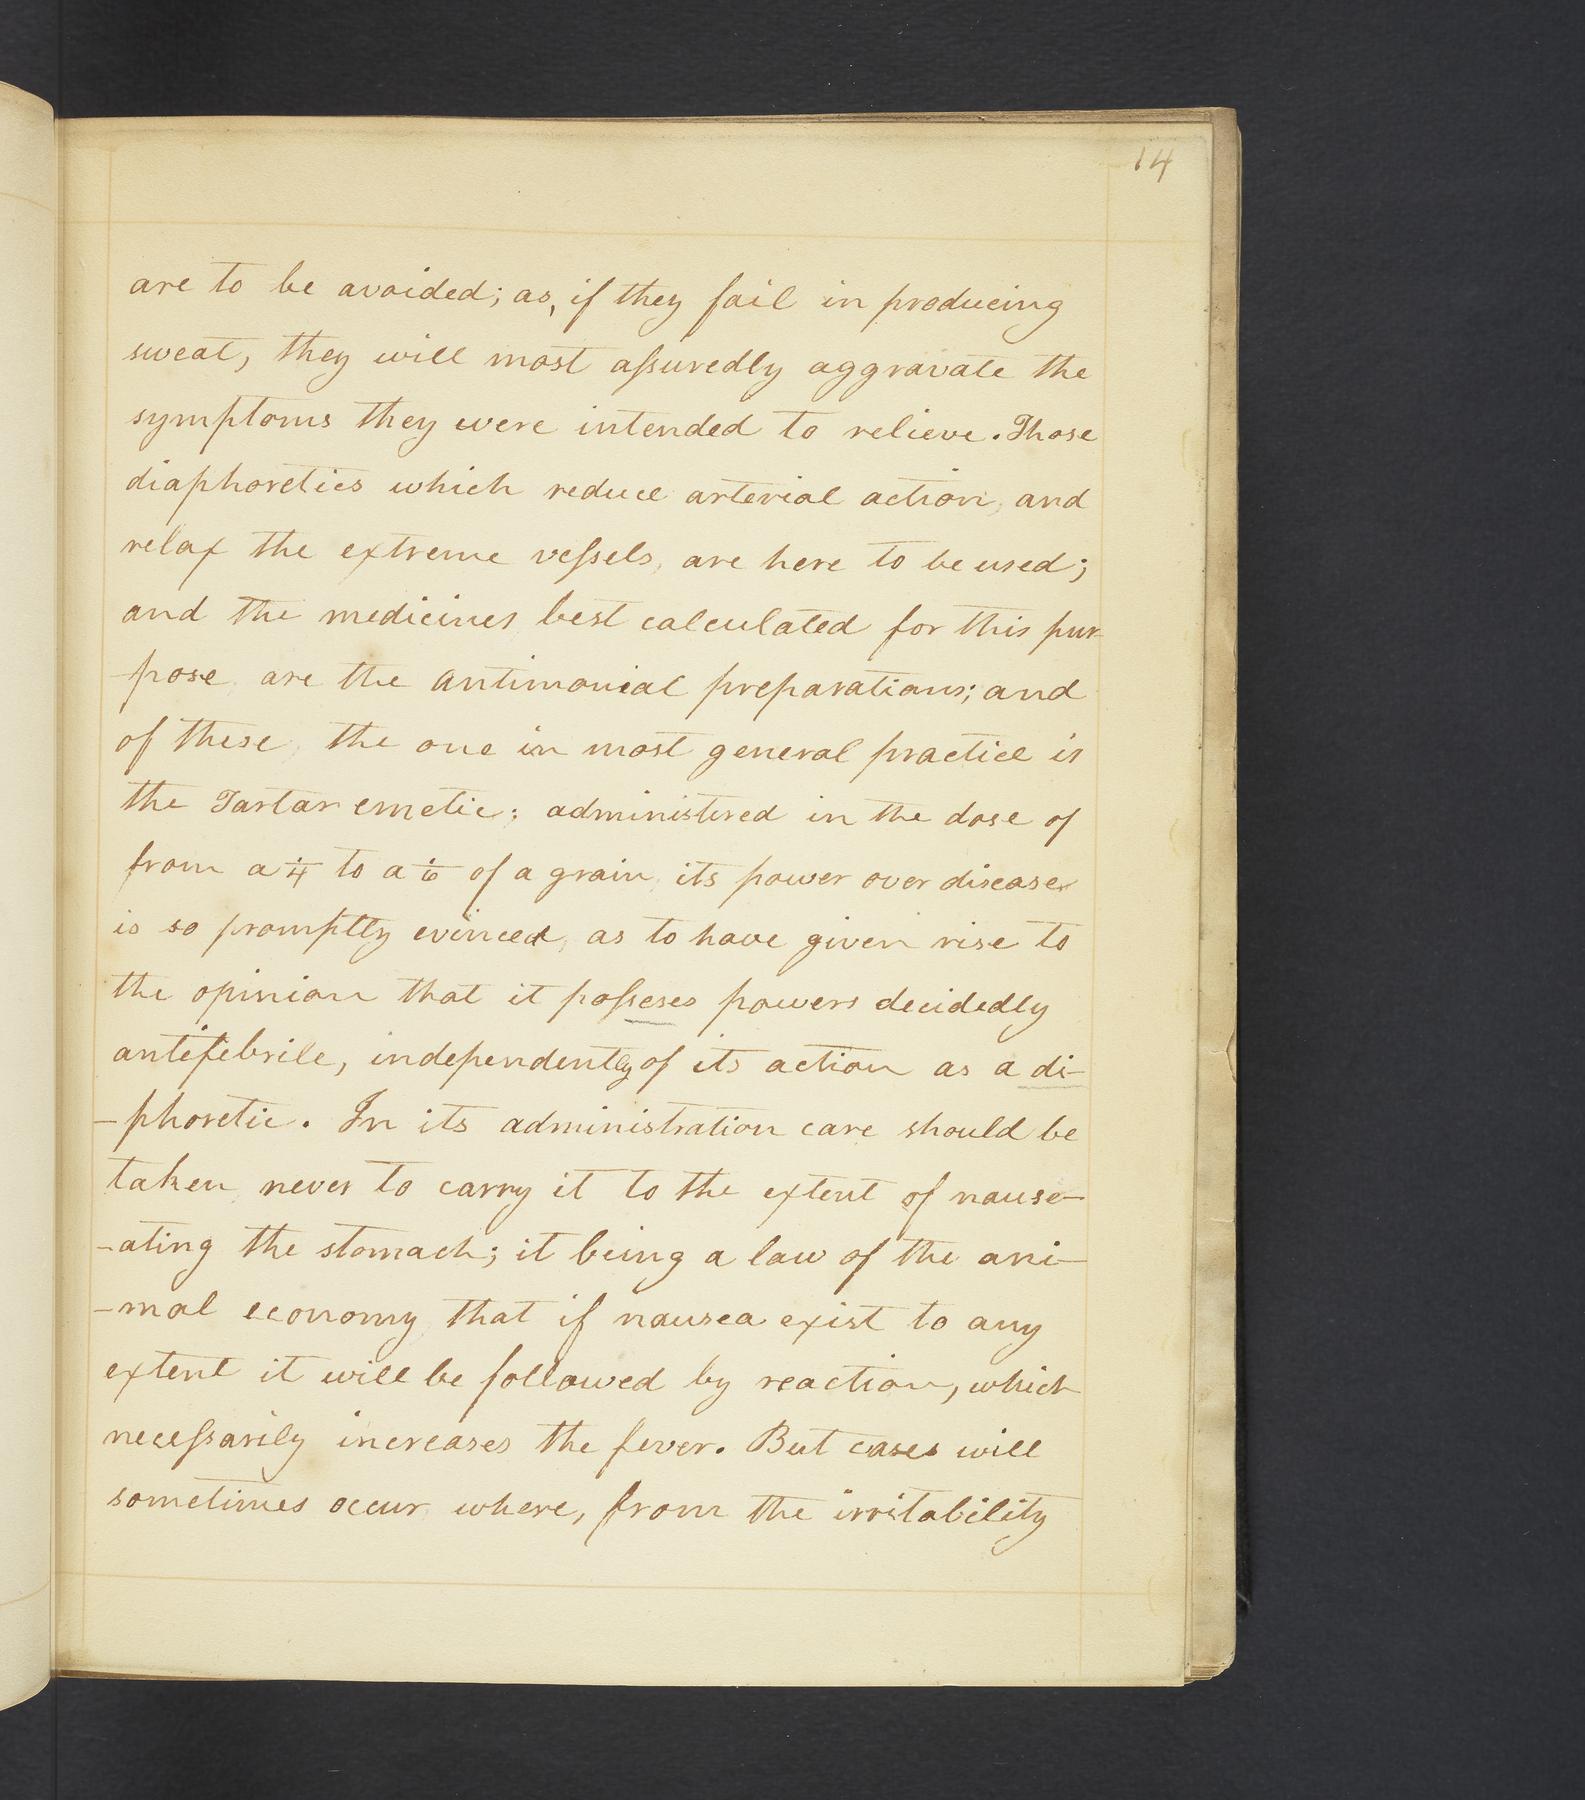 14
are to be avoided; as, if they fail in producing
sweat, they will most aſsuredly aggravate the
symptoms they were intended to relieve. Those
diaphoretics which reduce arterial action, and
relax the extreme veſsels, are here to be used;
and the medicines best calculated for this pur-
-pose are the antimonial preparations; and
of these, the one in most general practice is
the Tartar emetic; administered in the dose of
from a ¼ to a ⅙ of a grain, its power over disease
is so promptly evinced, as to have given rise to
the opinion that it poſseses powers decidedly
antifebrile, independently of its action as a di-
-phoretic. In its administration care should be
taken never to carry it to the extent of nause-
-ating the stomach; it being a law of the ani-
-mal economy, that if nausea exist to any
extent it will be followed by reaction, which
neceſsarily increases the fever. But cases will
sometimes occur, where, from the irritability